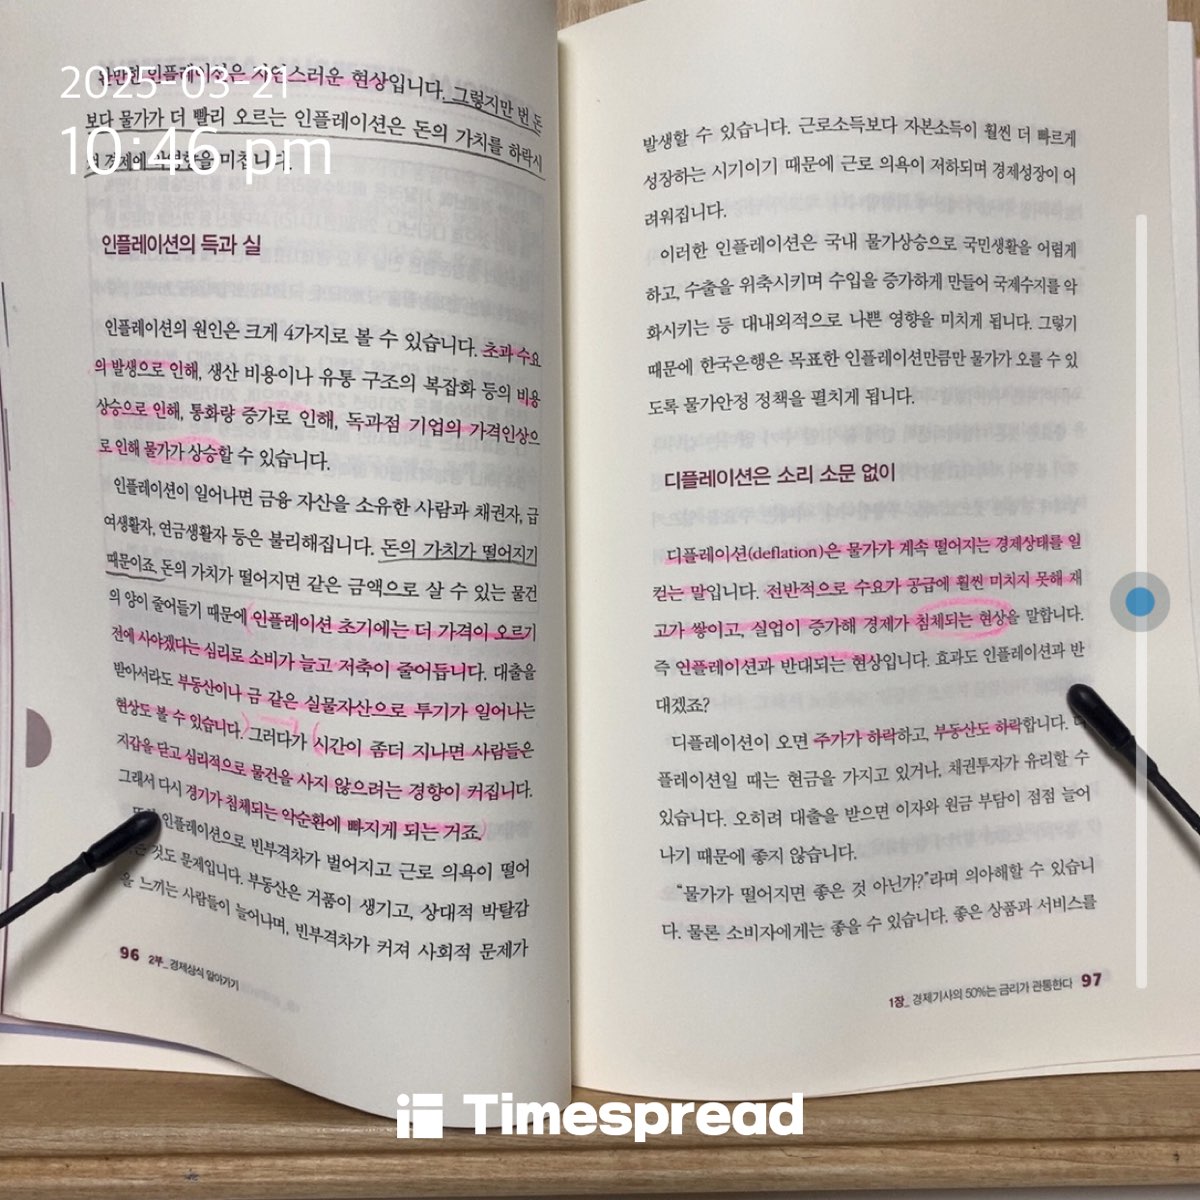 2025-03-21
10:46 pm
인플레이션은 자연스러운 현상입니다. 그렇지만 번 돈
보다 물가가 더 빨리 오르는 인플레이션은 돈의 가치를 하락시
경제에 악영향을 미칩니다.
인플레이션의 득과 실
인플레이션의 원인은 크게 4가지로 볼 수 있습니다. 초과 수요
의 발생으로 인해, 생산 비용이나 유통 구조의 복잡화 등의 비용
상승으로 인해, 통화량 증가로 인해, 독과점 기업의 가격인상으
로 인해 물가가 상승할 수 있습니다.
인플레이션이 일어나면 금융 자산을 소유한 사람과 채권자, 급
여생활자, 연금생활자 등은 불리해집니다. 돈의 가치가 떨어지기
때문이죠. 돈의 가치가 떨어지면 같은 금액으로 살 수 있는 물건
의 양이 줄어들기 때문에 인플레이션 초기에는 더 가격이 오르기
전에 사야겠다는 심리로 소비가 늘고 저축이 줄어듭니다. 대출을
받아서라도 부동산이나 금 같은 실물자산으로 투기가 일어나는
현상도 볼 수 있습니다. 그러다가 시간이 좀더 지나면 사람들은
지갑을 닫고 심리적으로 물건을 사지 않으려는 경향이 커집니다.
그래서 다시 경기가 침체되는 악순환에 빠지게 되는 거죠.
인플레이션으로 빈부격차가 벌어지고 근로 의욕이 떨어
것도 문제입니다. 부동산은 거품이 생기고, 상대적 박탈감
을 느끼는 사람들이 늘어나며, 빈부격차가 커져 사회적 문제가
96 2부_ 경제상식 알아가기
발생할 수 있습니다. 근로소득보다 자본소득이 훨씬 더 빠르게
성장하는 시기이기 때문에 근로 의욕이 저하되며 경제성장이 어
려워집니다.
이러한 인플레이션은 국내 물가상승으로 국민생활을 어렵게
하고, 수출을 위축시키며 수입을 증가하게 만들어 국제수지를 악
화시키는 등 대내외적으로 나쁜 영향을 미치게 됩니다. 그렇기
때문에 한국은행은 목표한 인플레이션만큼만 물가가 오를 수 있
도록 물가안정 정책을 펼치게 됩니다.
디플레이션은 소리 소문 없이
디플레이션(deflation)은 물가가 계속 떨어지는 경제상태를 일
컫는 말입니다. 전반적으로 수요가 공급에 훨씬 미치지 못해 재
고가 쌓이고, 실업이 증가해 경제가 침체되는 현상을 말합니다.
즉 인플레이션과 반대되는 현상입니다. 효과도 인플레이션과 반
대겠죠?
디플레이션이 오면 주가가 하락하고, 부동산도 하락합니다. 디
플레이션일 때는 현금을 가지고 있거나, 채권투자가 유리할 수
있습니다. 오히려 대출을 받으면 이자와 원금 부담이 점점 늘어
나기 때문에 좋지 않습니다.
"물가가 떨어지면 좋은 것 아닌가?"라며 의아해할 수 있습니
다. 물론 소비자에게는 좋을 수 있습니다. 좋은 상품과 서비스를
1장_ 경제기사의 50%는 금리가 관통한다 97
Timespread